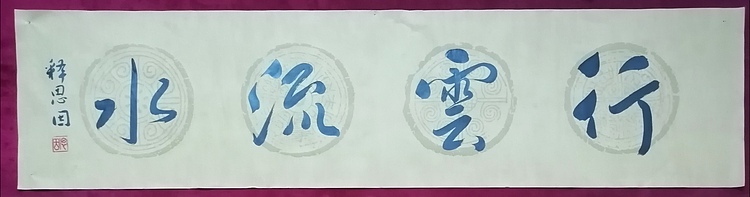 行雲流水
释思因